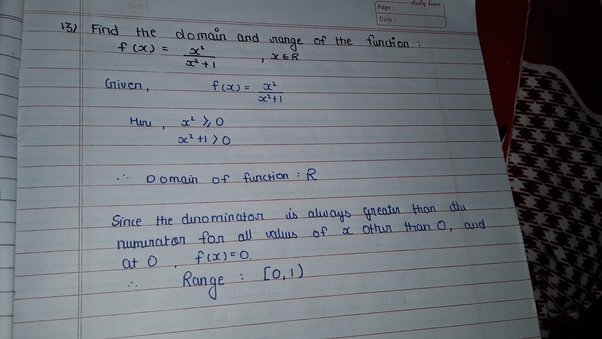 daily lines
Page :
Date :
13) Find the domain and range of the function :
f(x) = x²/x²+1 , x∈R
Given, f(x) = x²/x²+1
Here, x² ⩾ 0
x²+1 > 0
∴ Domain of function : R
Since the denominator is always greater than the
numerator for all values of x other than 0, and
at 0, f(x)=0.
∴ Range : [0,1)